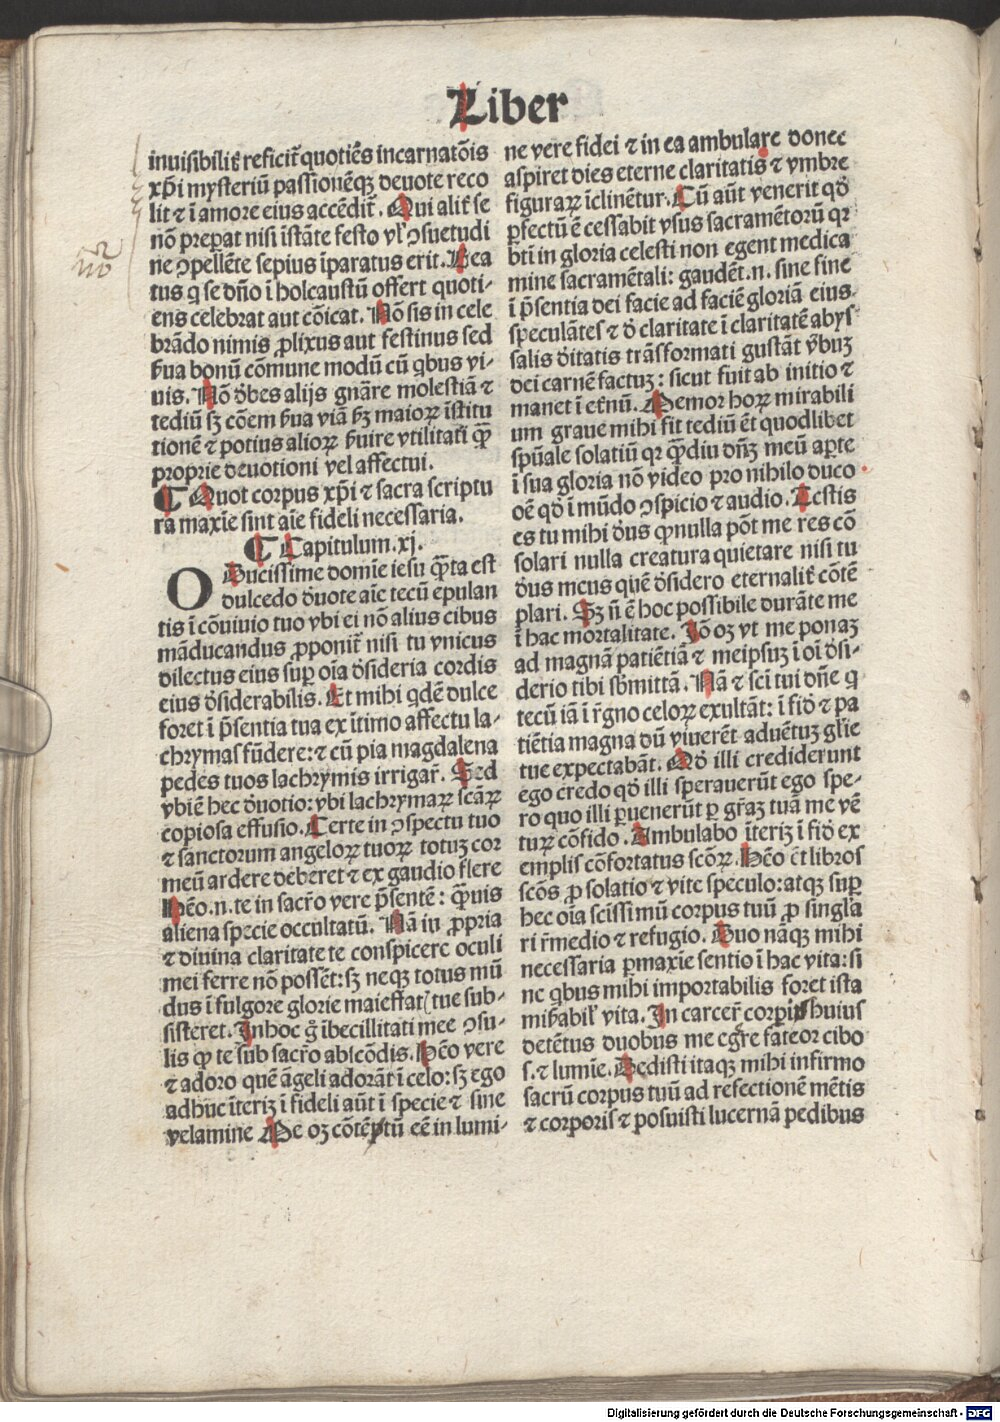 Liber
inuisibilit᷑ reficit᷑ quotiēs incarnatōis
xp̄i mysteriū passionēqꝫ deuote reco
lit ⁊ ī amore eius accēdit᷑. Qui alit᷑ se
nō preparat nisi īstāte festo vl̕ ꝯsuetudi
ne ꝯpellēte sepius īparatus erit. Bea
tus q̇ se dn̄o ī holcaustū offert quoti-
ens celebrat aut cōicat. Nō sis in cele
brādo nimis ꝓlixus aut festinus sed
ẜua bonū cōmune modū cū qbus vi-
uis. Nō d̓bes alijs gn̄are molestiā ⁊
tediū sꝫ cōem ẜua viā ẜꝫ maioꝝ īstitu
tionē ⁊ potius alioꝝ ẜuire vtilitati qͣꝫ
proprie deuotioni vel affectui.
¶ Quot corpus xp̄i ⁊ sacra scriptu
ra maxīe sint aīe fideli necessaria.
¶ Capitulum.xj.
O Dulcissime domīe iesu qͣta est
dulcedo d̓uote aīe tecū epulan
tis ī cōuiuio tuo vbi ei nō alius cibus
māducandus ꝓponit᷑ nisi tu vnicus
dilectus eius suꝑ oīa d̓sideria cordis
eius d̓siderabilis. Et mihi qdē dulce
foret ī p̄sentia tua ex ītimo affectu la-
chrymas fūdere: ⁊ cū pia magdalena
pedes tuos lachrymis irrigar̄. Sed
vbiē hec d̓uotio: vbi lachrymaꝝ scāꝝ
copiosa effusio. Certe in ꝯspectu tuo
⁊ sanctorum angeloꝝ tuoꝝ totuꝫ cor
meū ardere deberet ⁊ ex gaudio flere
Hēo.n.te in sacr̄o vere p̄sentē: qͣuis
aliena specie occultatū. Nā in ꝓpria
⁊ diuina claritate te conspicere oculi
mei ferre nō possēt: sꝫ neqꝫ totus mū
dus ī fulgore glorie maiestat( tue sub-
sisteret. In hoc g̊ ībecillitati mee ꝯsu-
lis ꝙ te sub sacr̄o abscōdis. Hēo vere
⁊ adoro quē āgeli adorāt ī celo: sꝫ ego
adhuc īteriꝫ ī fide illi aūt ī specie ⁊ sine
velamine Me oꝫ cōtētū eē in lumi-
ne vere fidei ⁊ in ea ambulare donec
aspiret dies eterne claritatis ⁊ vmbre
figuraꝝ īclinētur. Cū aūt venerit qd̓
ꝑfectū ē cessabit vsus sacramētorū qr
bt̄i in gloria celesti non egent medica
mine sacramētali: gaudēt.n. sine fine
ī p̄sentia dei facie ad faciē gloriā eius
speculātes ⁊ d̓ claritate ī claritatē abys
salis d̓itatis trāsformati gustāt v̓buꝫ
dei carnē factuꝫ: sicut fuit ab initio ⁊
manet ī et̓nū. Memor hoꝝ mirabili
um graue mihi fit tediū ēt quodlibet
sp̄uale solatiū qr qͣdiu dn̄ꝫ meū aꝑte
ī sua gloria nō video pro nihilo duco
oē qd̓ ī mūdo ꝯspicio ⁊ audio. Testis
es tu mihi d̓us ꝙ nulla pōt me res cō
solari nulla creatura quietare nisi tu
d̓us meus quē d̓sidero eternalit᷑ cōtē
plari. Sꝫ n̄ ē hoc possibile durāte me
ī hac mortalitate. Iō oꝫ vt me ponaꝫ
ad magnā patiētiā ⁊ meipsuꝫ ī oī d̓si-
derio tibi sb̄mittā. Nā ⁊ sci tui dn̄e q
tecū iā ī r̄gno celoꝝ exultāt: ī fid̓ ⁊ pa
tiētia magna dū viuerēt aduētuꝫ gl̓ie
tue expectabāt. Qd̓ illi crediderunt
ego credo qd̓ illi sperauerūt ego spe-
ro quo illi ꝑuenerūt ꝑ gr̄aꝫ tuā me vē
tuꝝ cōfido. Ambulabo īteriꝫ ī fid̓ ex
emplis cōfortatus scōꝝ. Hēo ēt libros
scōs ꝓ solatio ⁊ vite speculo: atqꝫ suꝑ
hec oīa scissimū corpus tuū ꝓ singl̓a
ri r̄medio ⁊ refugio. Duo nāqꝫ mihi
necessaria ꝑmaxīe sentio ī hac vita: si
ne qbus mihi importabilis foret ista
mis̓abil̕ vita. In carcer̄ corporis huius
detētus duobus me egr̄e fateor cibo
s. ⁊ lumīe. Dedisti itaqꝫ mihi infirmo
sacrū corpus tuū ad refectionē mētis
⁊ corporis ⁊ posuisti lucernā pedibus
Digitalisierung gefördert durch die Deutsche Forschungsgemeinschaft - DFG